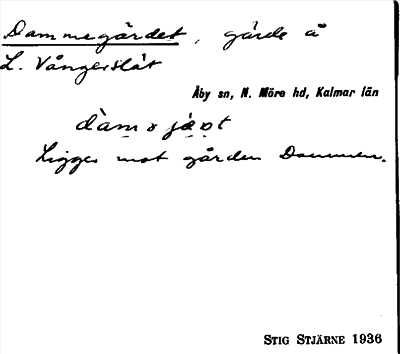 Dammegärdet, gärde å
L. Vångerslät
Åby sn, N. Möre hd, Kalmar län
Ligger mot gården Dammen.
STIG STJÄRNE 1936